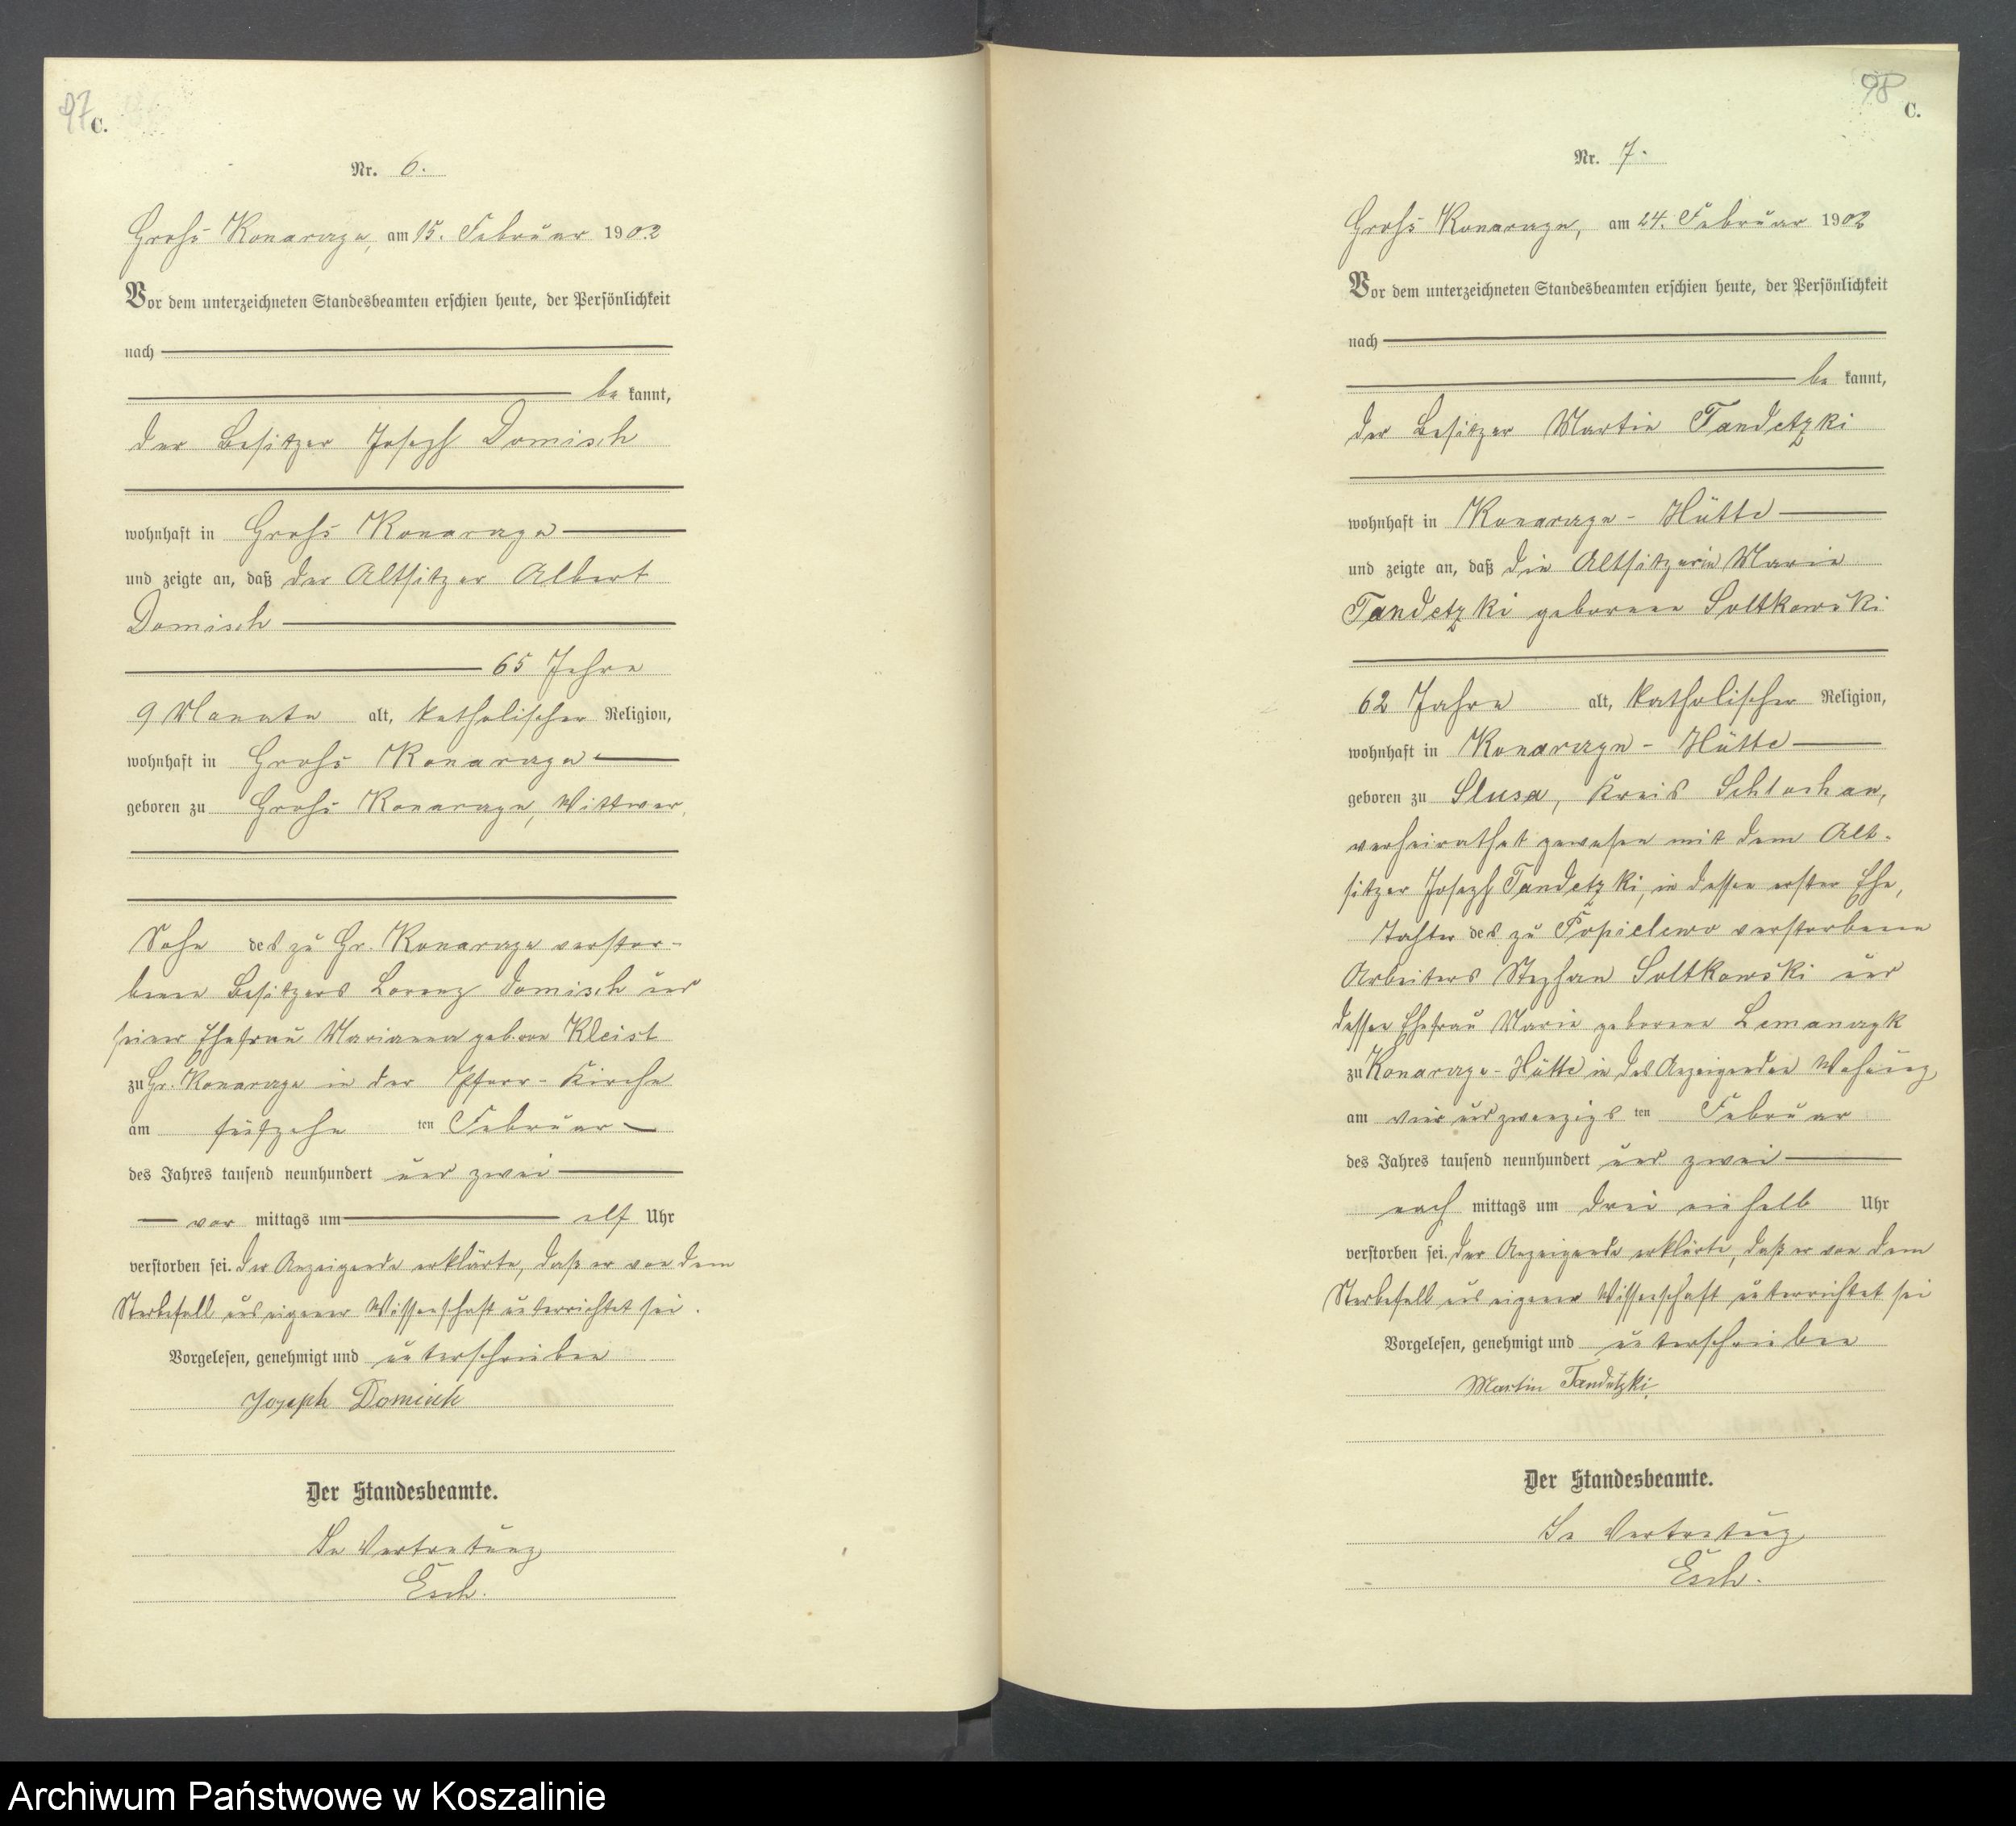 97
C.
Nr. 6.
Groß Konarczyn, am 15. Februar 1902
Vor dem unterzeichneten Standesbeamten erschien heute, der Persönlichkeit
nach
be kannt,
der Besitzer Joseph Domisch
wohnhaft in Groß Konarczyn
und zeigte an, daß der Altsitzer Albert
Domisch
65 Jahre
9 Monate alt, katholischer Religion,
wohnhaft in Groß Konarczyn
geboren zu Groß Konarczyn, Wittwer,
Sohn des zu Gr. Konarczyn verstor-
benen Besitzers Lorenz Domisch und
seiner Ehefrau Marianna geborne Kleist
zu Gr. Konarczyn in der Pfarr-Kirche
am fünfzehn ten Februar
des Jahres tausend neunhundert und zwei
vor mittags um elf Uhr
verstorben sei. Der Anzeigende erklärte, daß er von dem
Sterbefall aus eigener Wissenschaft unterrichtet sei.
Vorgelesen, genehmigt und unterschrieben
Joseph Domisch
Der Standesbeamte.
In Vertretung
Esch.
98
C.
Nr. 7.
Groß Konarczyn, am 24. Februar 1902
Vor dem unterzeichneten Standesbeamten erschien heute, der Persönlichkeit
nach
be kannt,
der Besitzer Martin Tandetzki
wohnhaft in Konarczyn-Hütte
und zeigte an, daß die Altsitzerin Marie
Tandetzki geborene Soltkowski
62 Jahre alt, katholischer Religion,
wohnhaft in Konarczyn-Hütte
geboren zu Slusa, Kreis Schlochau,
verheirathet gewesen mit dem Alt-
sitzer Joseph Tandetzki, in dessen erster Ehe,
Tochter des zu Popielewo verstorbenen
Arbeiters Stephan Soltkowski und
dessen Ehefrau Marie geborene Lemanczyk
zu Konarczyn-Hütte in des Anzeigenden Wohnung
am vier und zwanzigs ten Februar
des Jahres tausend neunhundert und zwei
nach mittags um drei ein halb Uhr
verstorben sei. Der Anzeigende erklärte, daß er von dem
Sterbefall aus eigener Wissenschaft unterrichtet sei
Vorgelesen, genehmigt und unterschrieben
Martin Tandetzki
Der Standesbeamte.
In Vertretung
Esch.
Archiwum Państwowe w Koszalinie